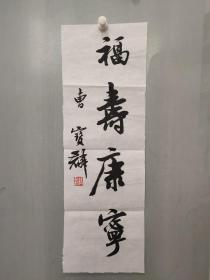 福壽康寧
曹寶麟